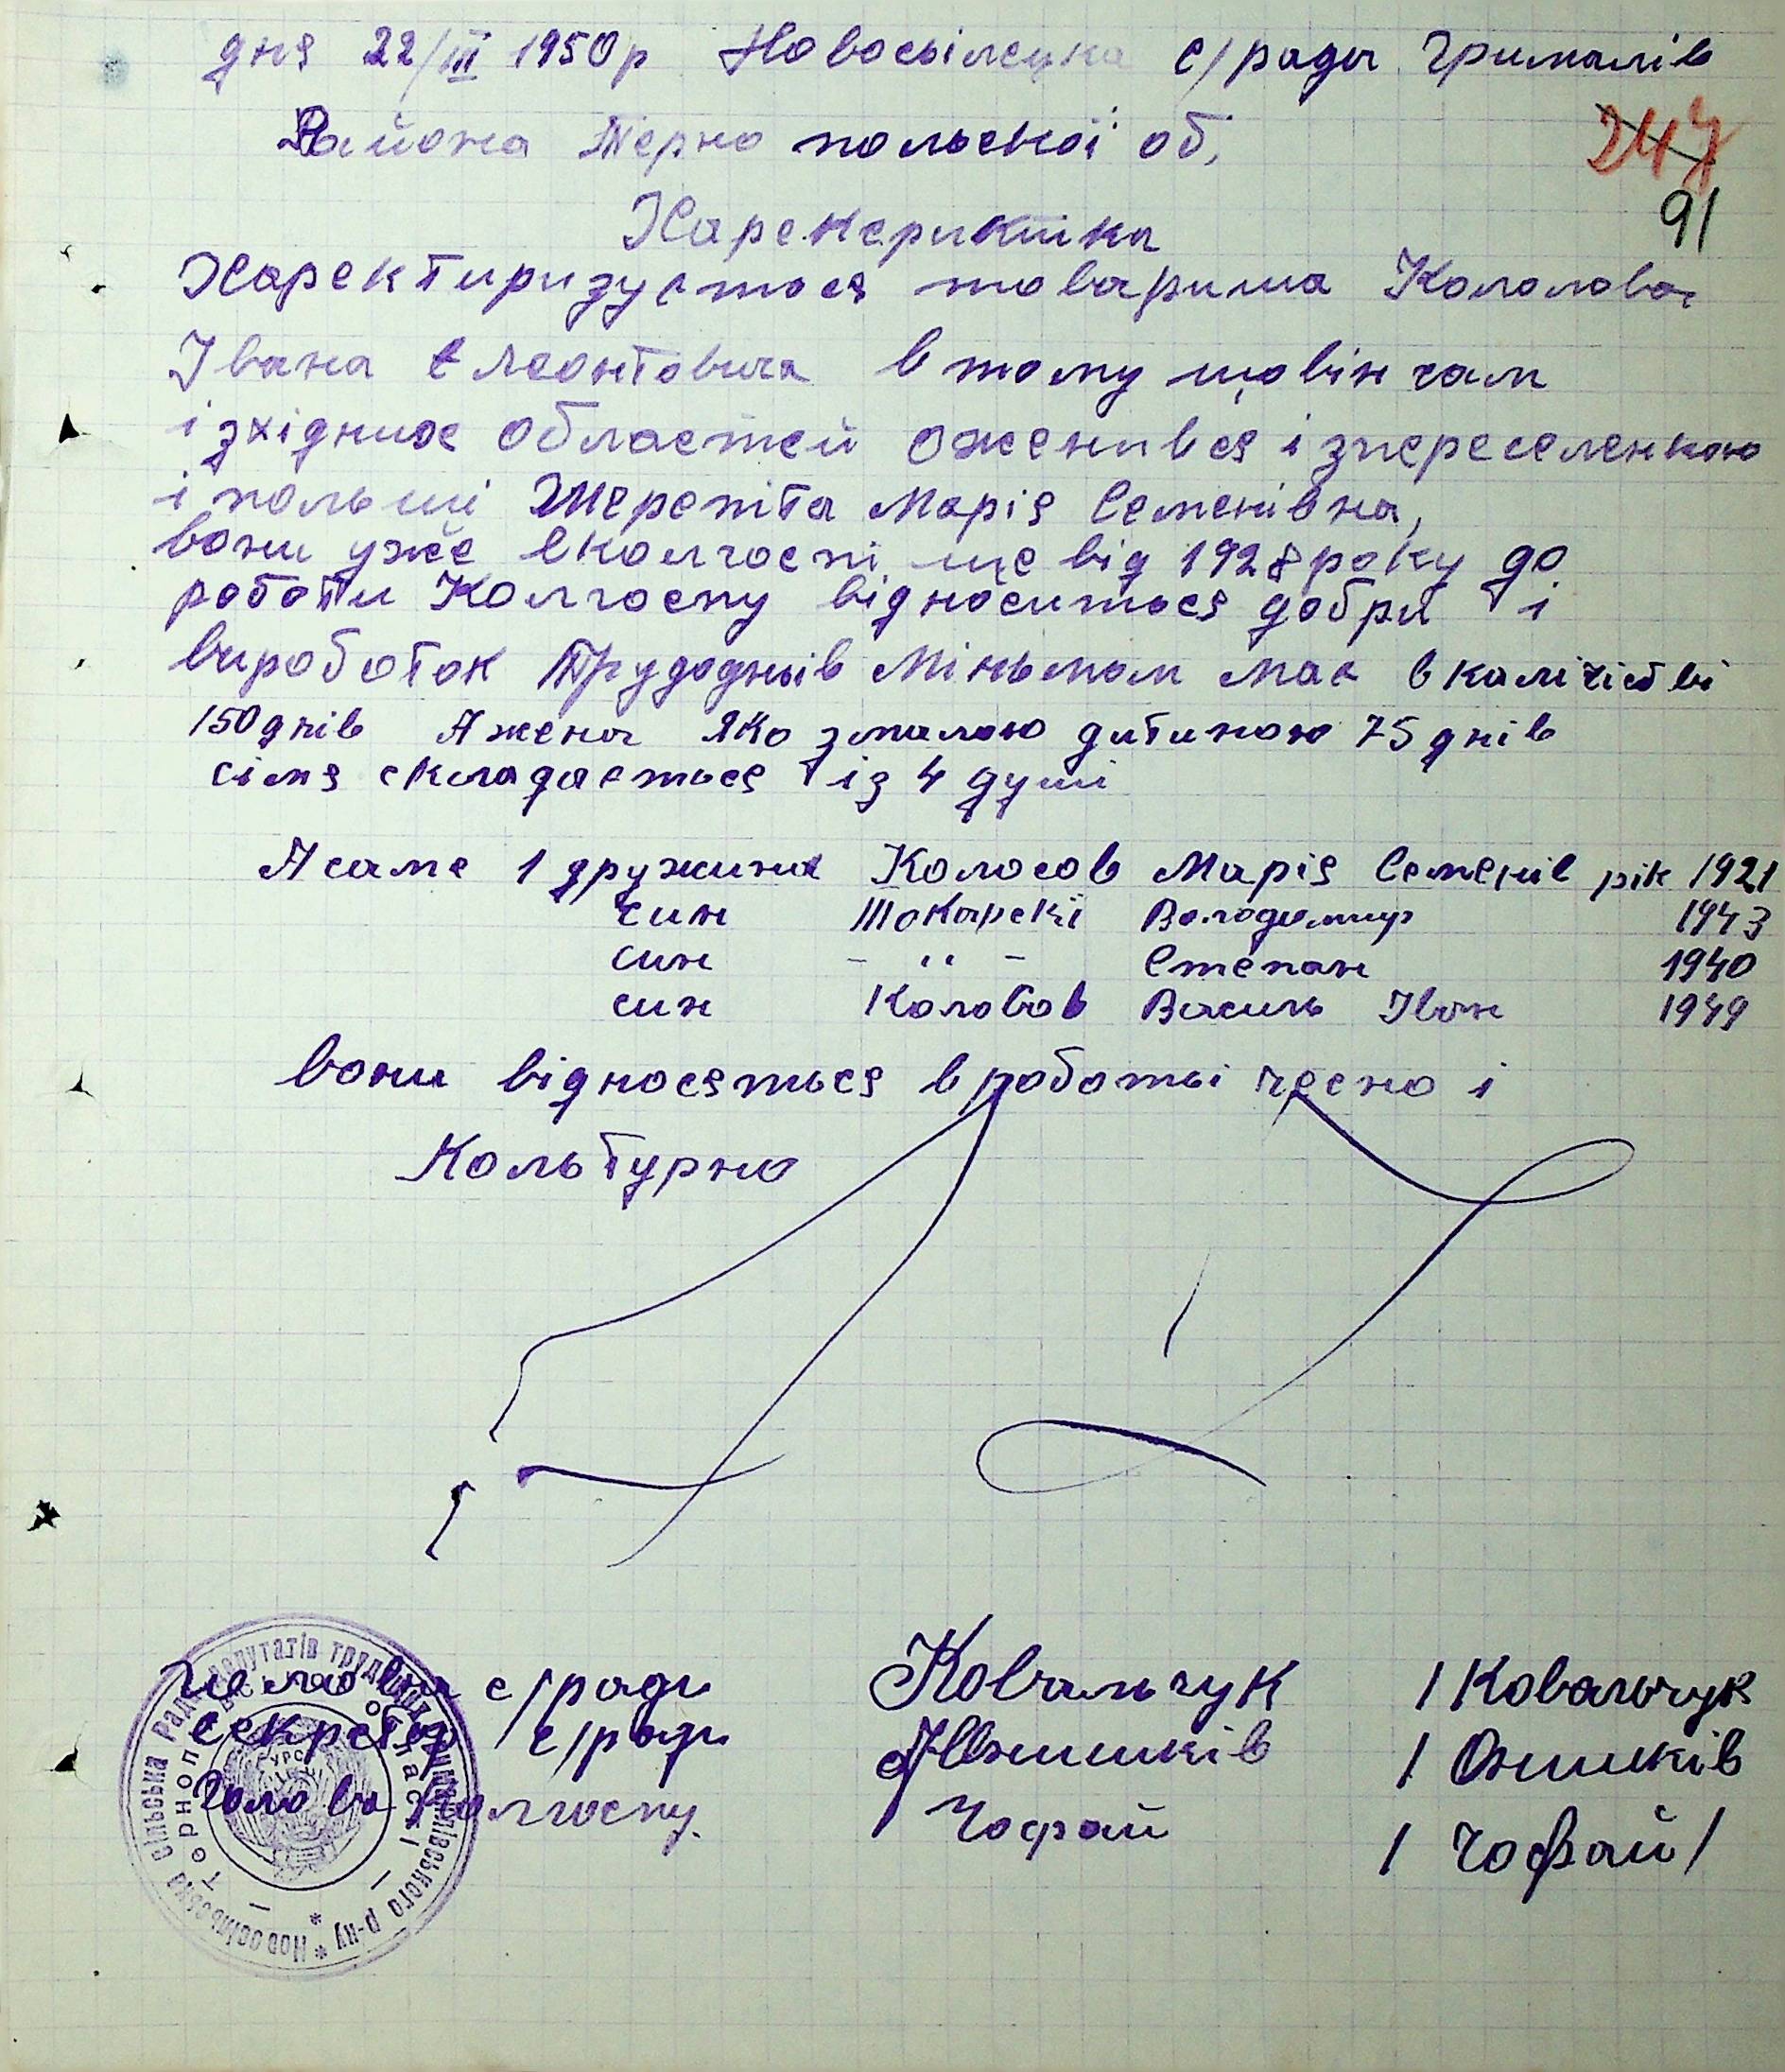 дня 22/III 1950р Новосілецька с/ради Грималів
247
Района Тернопольської об.
91
Харекериктика
Харектиризується товариша Кололова
Івана Леонтовича в тому що він чам
і зхідних областей оженився із переселенкою
і польші Шерепіта Марія Семенівна,
вони уже в колгоспі ще від 1928 року до
работи Колгоспу відноситься добри і
вироботок Трудоднів Міньмом має в калічістві
150 днів А жена яко з малою дитиною 75 днів
сімя складається із 4 душі
А саме 1 дружина Колосов Марія Семенів рік 1921
син Токарскі Володимир 1943
син - " - Степан 1940
син Колосов Василь Іван 1949
вони відносяться в роботі чесно і
Кольтурно
Голова с/ради Ковальчук / Ковальчук
секретар с/ради Ожишків / Ожишків
Голова Колгоспу. Чофай / Чофай /
Новосільська сільська Рада депутатів трудящих Грималівського р-ну * Тернопільської області *
УРСР